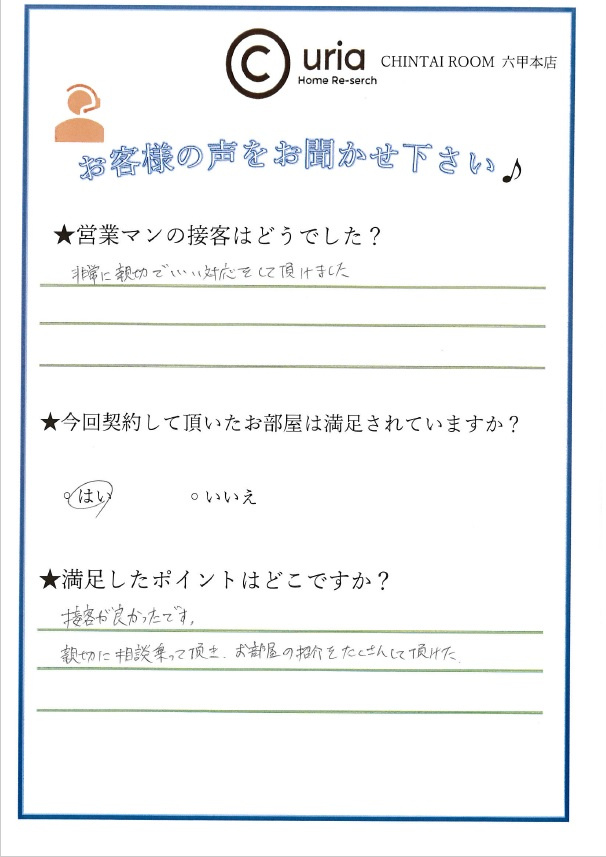 © uria
Home Re-serch
CHINTAI ROOM 六甲本店
お客様の声をお聞かせ下さい♪
★営業マンの接客はどうでした？
非常に親切でいい対応をして頂けました
★今回契約して頂いたお部屋は満足されていますか？
○はい ○いいえ
★満足したポイントはどこですか？
接客が良かったです。
親切に相談乗って頂き、お部屋の紹介をたくさんして頂けた。